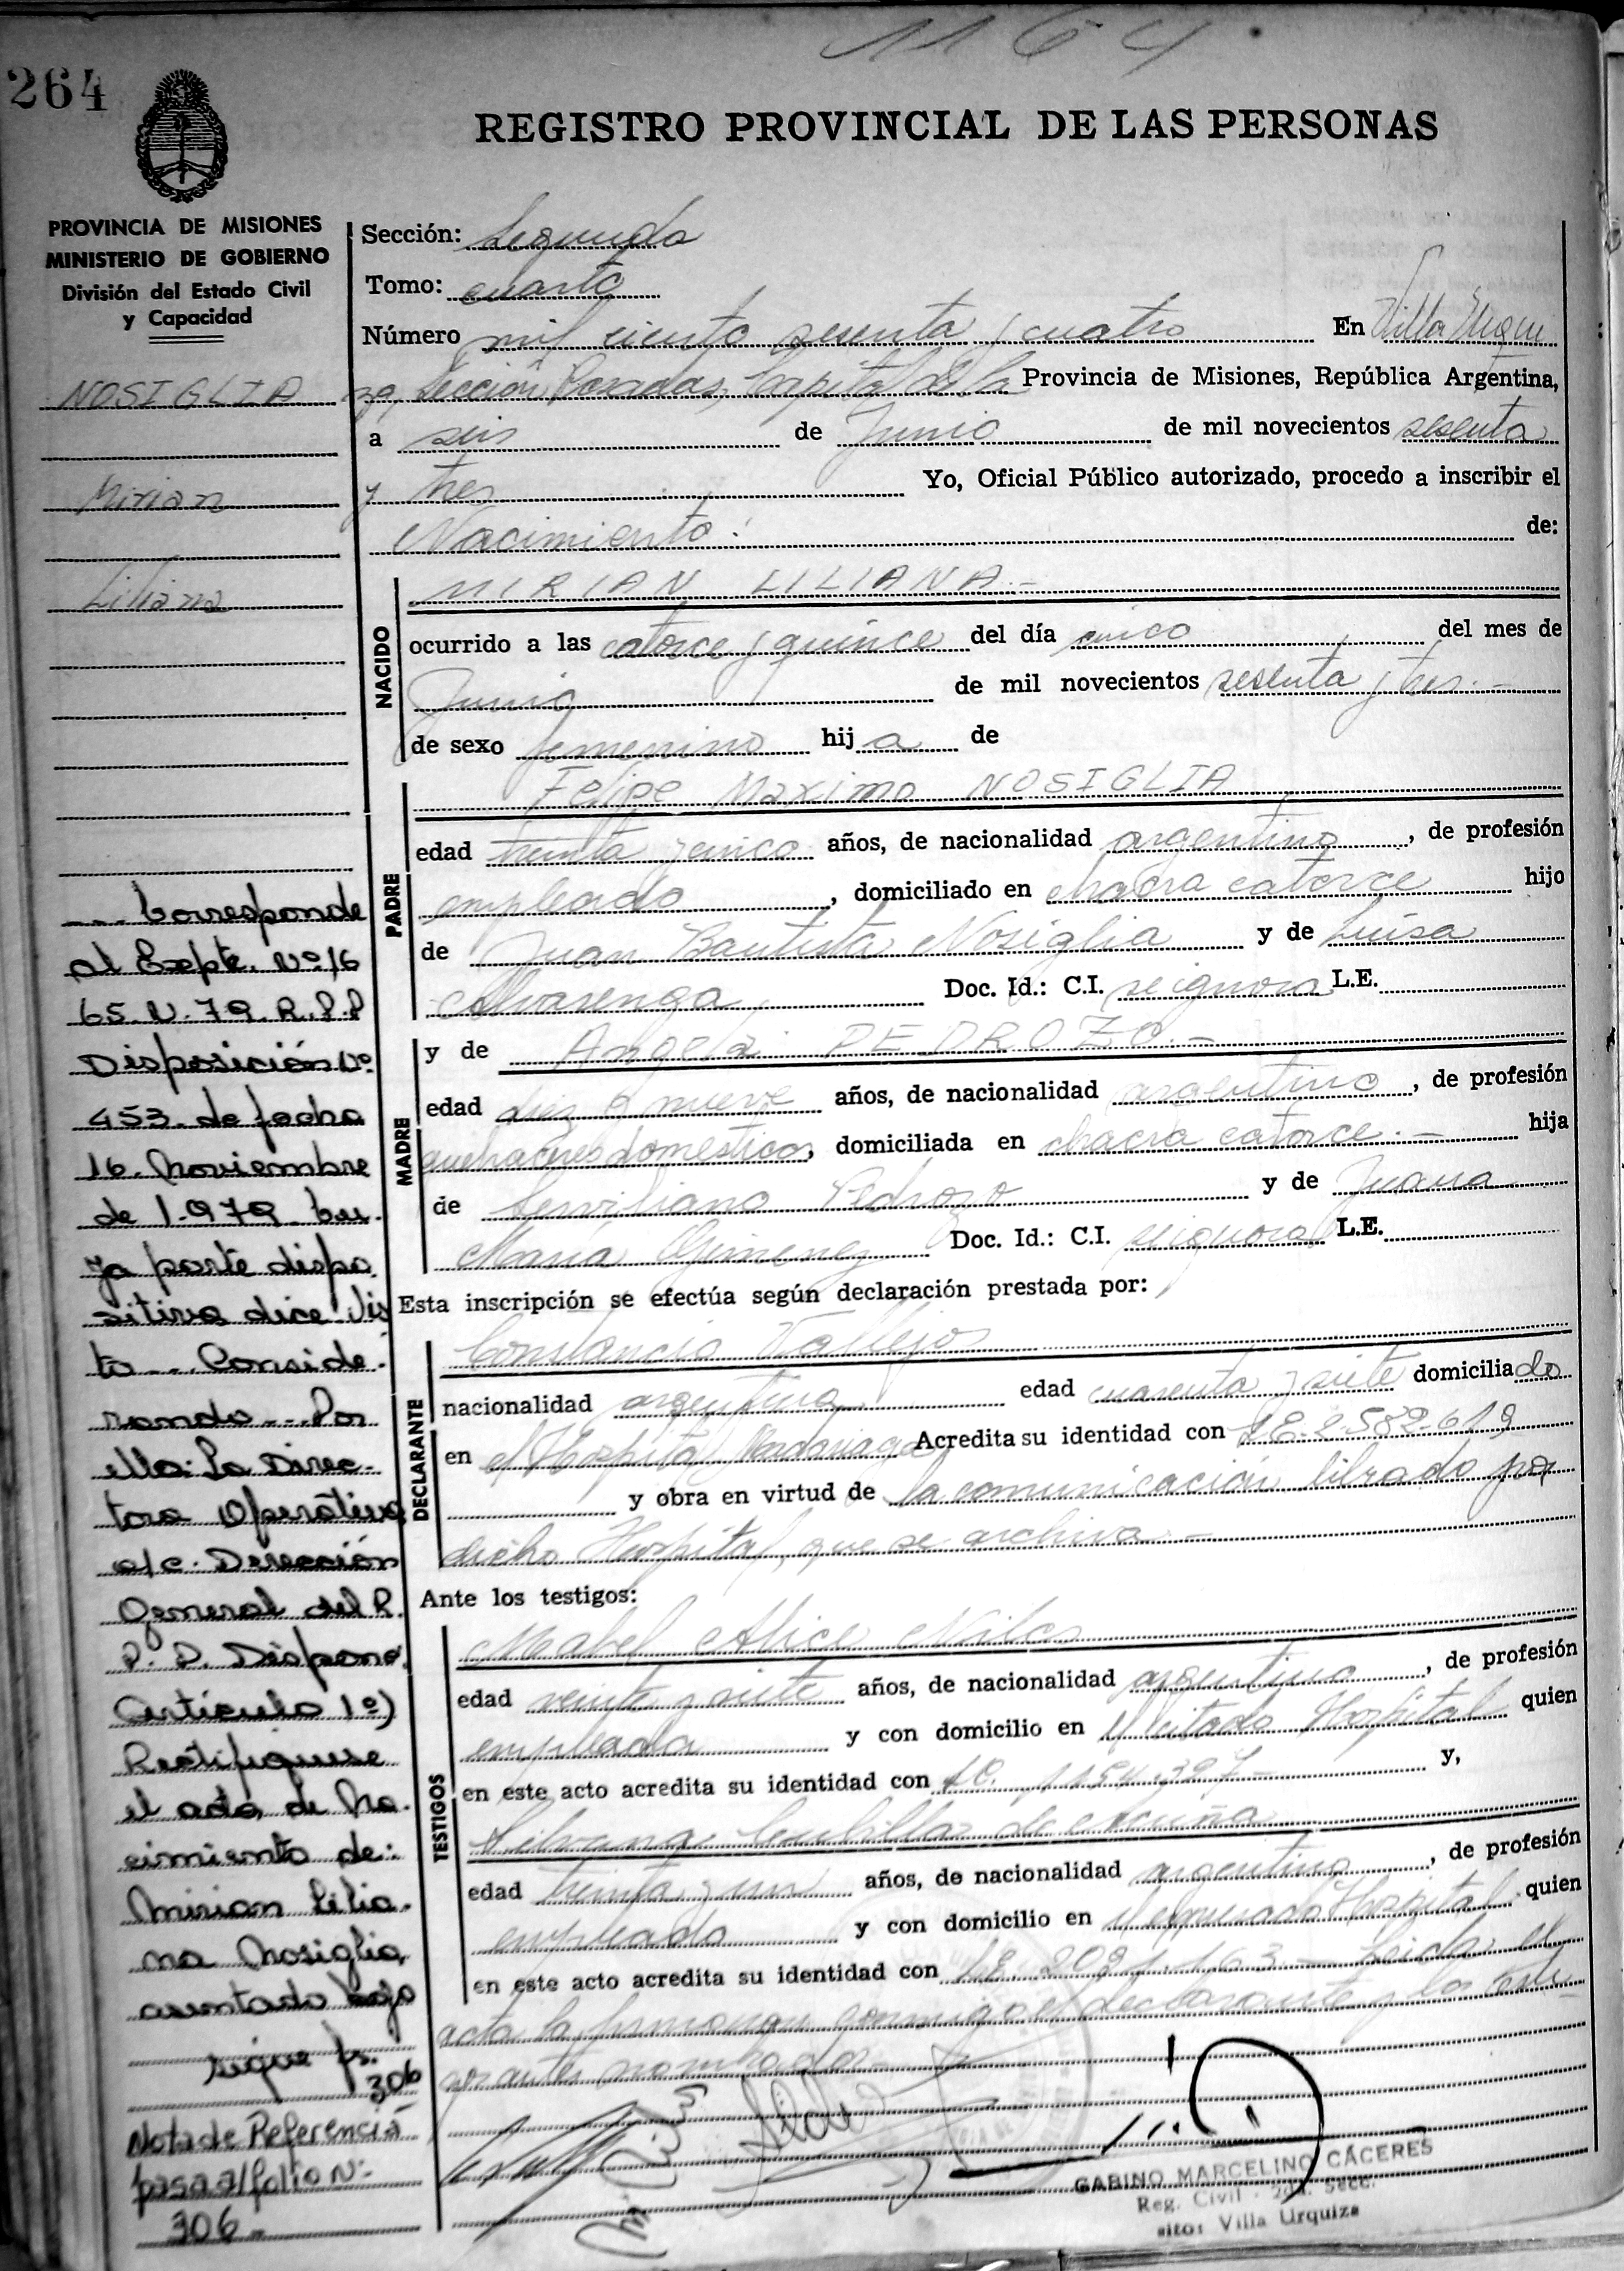 1164
264
REGISTRO PROVINCIAL DE LAS PERSONAS
PROVINCIA DE MISIONES
MINISTERIO DE GOBIERNO
División del Estado Civil
y Capacidad
NOSIGLIA
Mirian
Liliana
Sección: Segunda
Tomo: cuarto
Número mil ciento sesenta y cuatro En Villa Urqui
za, Sección Posadas, Capital de la Provincia de Misiones, República Argentina,
a seis de Junio de mil novecientos sesenta
y tres Yo, Oficial Público autorizado, procedo a inscribir el
Nacimiento: de:
NACIDO
MIRIAN LILIANA.-
ocurrido a las catorce y quince del día cinco del mes de
Junio de mil novecientos sesenta y tres.-
de sexo femenino hija de
PADRE
Felipe Maximo NOSIGLIA
edad treinta y cinco años, de nacionalidad argentino, de profesión
empleado, domiciliado en chacra catorce hijo
de Juan Bautista Nosiglia y de Luisa
Alvarenga Doc. Id.: C.I. se ignora L.E.
MADRE
y de Angela PEDROZO.-
edad diez y nueve años, de nacionalidad argentina, de profesión
quehaceres domesticos, domiciliada en chacra catorce.- hija
de Serviliano Pedrozo y de Juana
María Gimenez Doc. Id.: C.I. se ignora L.E.
Esta inscripción se efectúa según declaración prestada por:
DECLARANTE
Constancio Vallejos
nacionalidad argentina edad cuarenta y siete domiciliado
en el Hospital Madariaga Acredita su identidad con LE. 2.582.619
y obra en virtud de la comunicación librado por
dicho Hospital, que se archiva.-
Ante los testigos:
TESTIGOS
Mabel Alice
edad veinte y siete años, de nacionalidad argentina, de profesión
empleada y con domicilio en el citado Hospital quien
en este acto acredita su identidad con y,
Silvana Cubillas de Acuña
edad treinta y un años, de nacionalidad argentina, de profesión
empleada y con domicilio en el expresado Hospital quien
en este acto acredita su identidad con Leida el
acta la firman conmigo el declarante y los testi
gos antes nombrados
GABINO MARCELINO CÁCERES
Reg. Civil Secc.
sito: Villa Urquiza
... Corresponde
al Expte. Nº 16
65.N.79.R.P.P
Disposición Nº
453. de fecha
16. Noviembre
de 1.979. cu
ya parte dispo
sitiva dice: Vis
to ... Conside
rando ... Por
ello: La Direc-
tora Operativa
a/c. Dirección
General del R.
P. P. Dispone,
Artículo 1º)
Rectifiquese
el acta de Na
cimiento de:
Mirian Lilia
na Nosiglia,
asentado bajo
sigue fs.
306
Nota de Referencia
pasa al folio Nº
306-